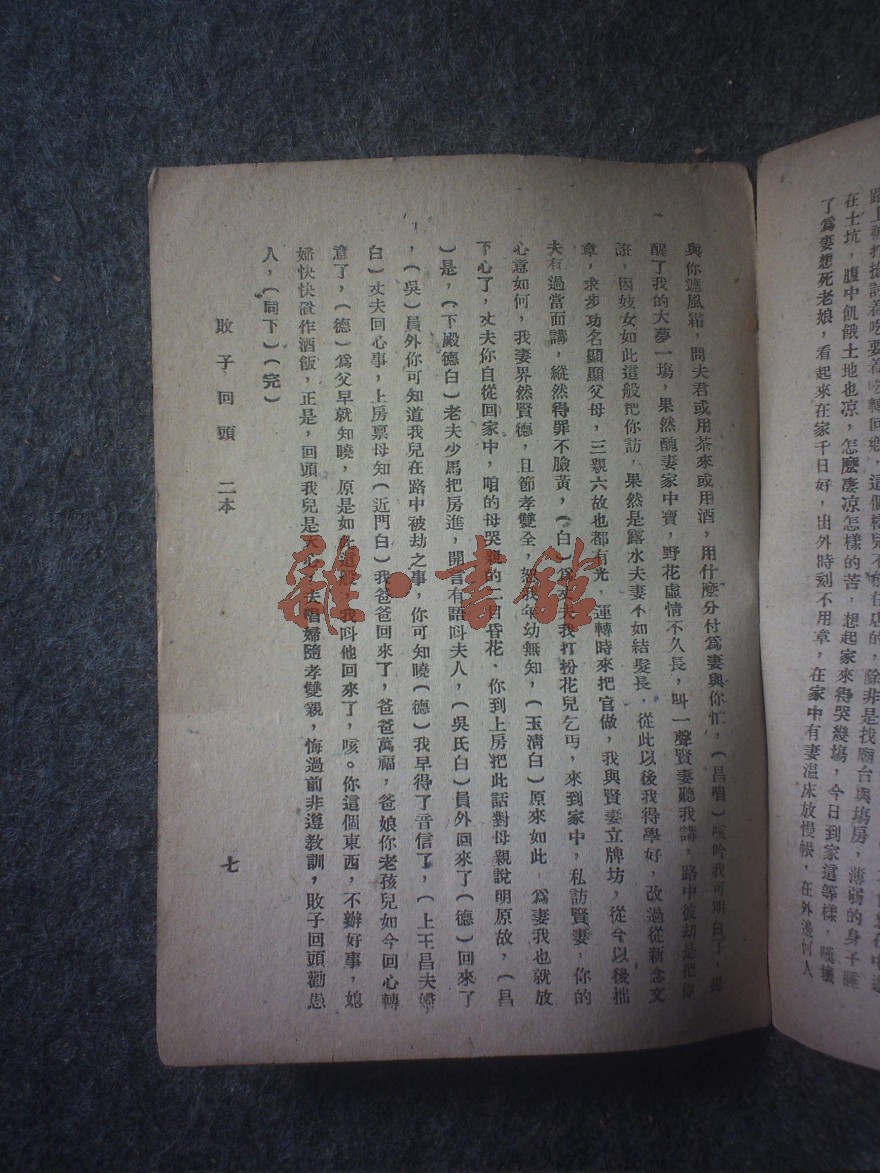 路上
在土坑，腹中飢餓土地也凉，怎麽凄凉怎樣的苦，想起家來得哭幾塲，今日到家這等樣，嘆壞
了爲妻想死老娘，看起來在家千日好，出外時刻不用章，在家中有妻温床放慢帳，在外邊何人
與你遮風霜，問夫君或用茶來或用酒，用什麽分付爲妻與你忙，（昌唱）咳吟我可明白了，提
醒了我的大夢一塲，果然醜妻家中寳，野花虛情不久長，叫一聲賢妻聽我講，路中被刧是把你
誆，因妓女如此這般把你訪，果然是露水夫妻不如結髮長，從此以後我得學好，改過從新念文
章，求步功名顯顯父母，三親六故也都有光，運轉時來把官做，我與賢妻立牌坊，從今以後拙
夫有過當面講，縱然得罪不臉黄，（白）爲丈夫我打扮花兒乞丐，來到家中，私訪賢妻，你的
心意如何，我妻界然賢德，且節孝雙全，恕我年幼無知，（玉清白）原來如此，爲妻我也就放
下心了，丈夫你自從回家中，咱的母哭親的二目昏花、你到上房把此話對母親說明原故，（昌
）是，（下殿德白）老夫少馬把房進，開言有語呌夫人，（吳氏白）員外回來了（德）回來了
，（吳）員外你可知道我兒在路中被刧之事，你可知曉（德）我早得了音信了，（上王昌夫婦
白）丈夫回心事，上房禀母知（近門白）我爸爸回來了，爸爸萬福，爸娘你老孩兒如今回心轉
意了，（德）爲父早就知曉，原是如此這 我呌他回來了，咳。你這個東西，不辦好事，媳
婦快快置作酒飯，正是，回頭我兒是天心 夫唱婦隨孝雙親，悔過前非遵教訓，敗子回頭勸患
人，（同下）（完）
敗子回頭 二本 七
雜·書館